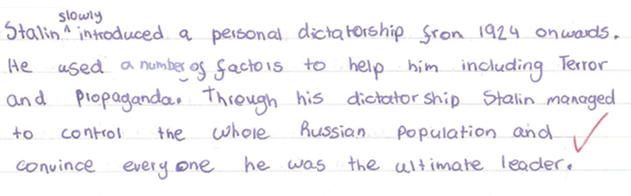 Stalin ^slowly introduced a personal dictatorship fron 1924 onwards.
He used a number of factors to help him including Terror
and Propaganda. Through his dictatorship Stalin managed
to control the whole Russian Population and
convince everyone he was the ultimate leader.